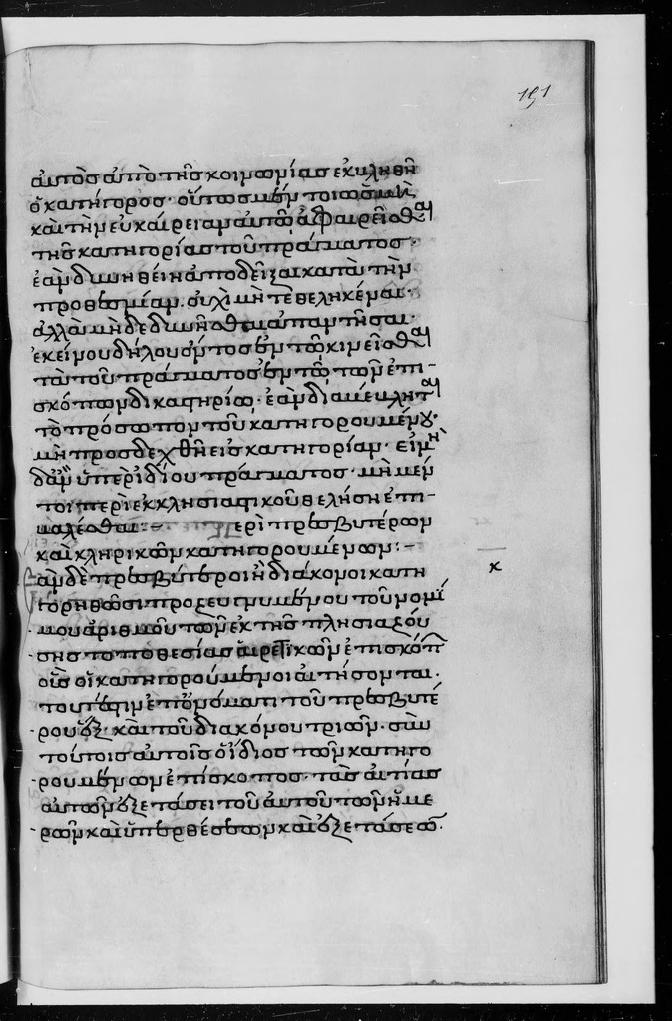 191
αυτὸσ ἀπὸ τῆσ κοινωνίασ ἐκινήθη
ὁ κατήγοροσ· οὕτωσ μὲν τοι ὥστε μὴ
καὶ τὴν εὐκαίρειαν αυτῶ ἀφαιρεῖσθαι
τῆσ κατηγορίασ τοῦ πράγματοσ·
ἐὰν δυνηθείη ἀποδεῖξαι κατὰ τὴν
προθεσμίαν. οὐχὶ μὴ τεθεληκέναι·
ἀλλὰ μὴ δεδυνῆσθαι ἀπαντῆσαι·
ἐκείνου δήλου ὄντοσ ἐν τῶ κινεῖσθαι
τὰ τοῦ πράγματοσ ἐν τῶ τῶν ἐπι-
σκόπων δικαστηρίω· ἐὰν διαμέμληται
τὸ πρόσωπον τοῦ κατηγορουμένου·
μὴ προσδεχθῆ εἰσ κατηγορίαν· εἰ μὴ
δἂν ὑπὲρ ἰδίου πράγματοσ· μὴ μέν
τοι περὶ ἐκκλησιαστικοῦ θελήση ἐπι-
καλέσθαι:– Περὶ πρεσβυτέρων
καὶ κληρικῶν κατηγορουμένων:–
ὰν δὲ πρεσβύτεροι ἢ διάκονοι κατη
γορηθῶσι προζευγνυμένου τοῦ νομί
μου ἀριθμοῦ τῶν ἐκ τῆσ πλησιαζού
σησ τοποθεσίασ αἱρετικῶν ἐπισκόπων
οὓσ οἱ κατηγορούμενοι αἰτήσονται.
τουτέστιν ἐπ᾽ ὀνόματι τοῦ πρεσβυτέ
ρου ἕξ· καὶ τοῦ διακόνου τριῶν· σὺν
τούτοισ αὐτοῖσ ὁ ἴδιοσ τῶν κατηγο
ρουμένων ἐπίσκοποσ· τὰσ αἰτίασ
αὐτῶν ἐξετάσει τοῦ αὐτοῦ τῶν ἡμε
ρῶν καὶ ὑπερθέσεων καὶ ἐξετάσεων